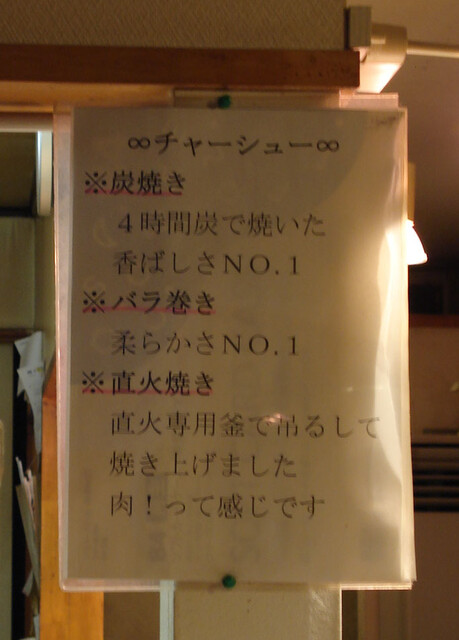 ∞チャーシュー∞
※炭焼き
４時間炭で焼いた
香ばしさＮＯ.１
※バラ巻き
柔らかさＮＯ.１
※直火焼き
直火専用釜で吊るして
焼き上げました
肉！って感じです